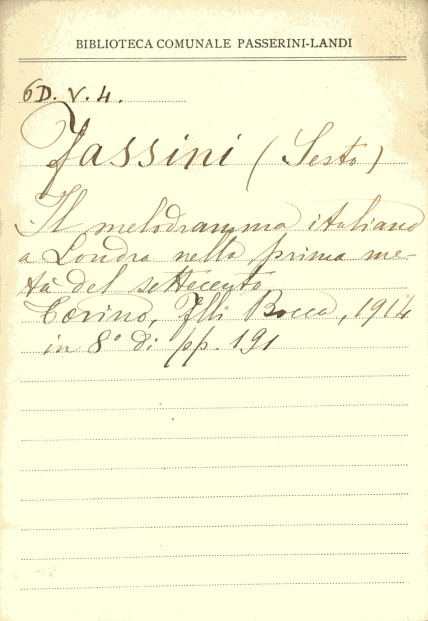 BIBLIOTECA COMUNALE PASSERINI-LANDI
6D. V. 4.
Fassini (Sesto)
Il melodramma italiano
a Londra nella prima me-
tà del settecento
Torino, Flli Bocca, 1914
in 8° di pp. 191